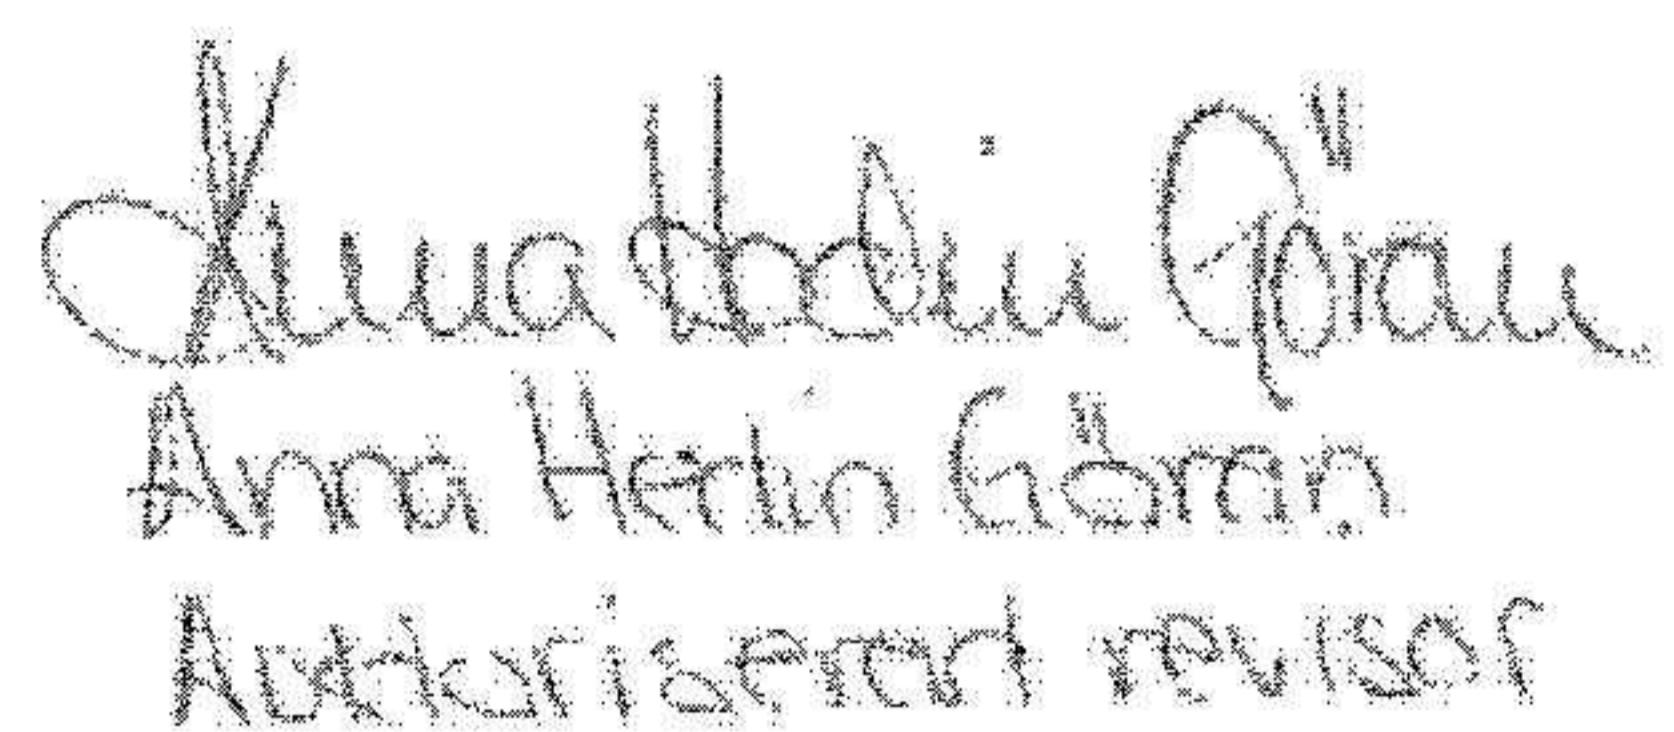 Anna Göran
Anna Herlin Göran
Auktoriserad revisor